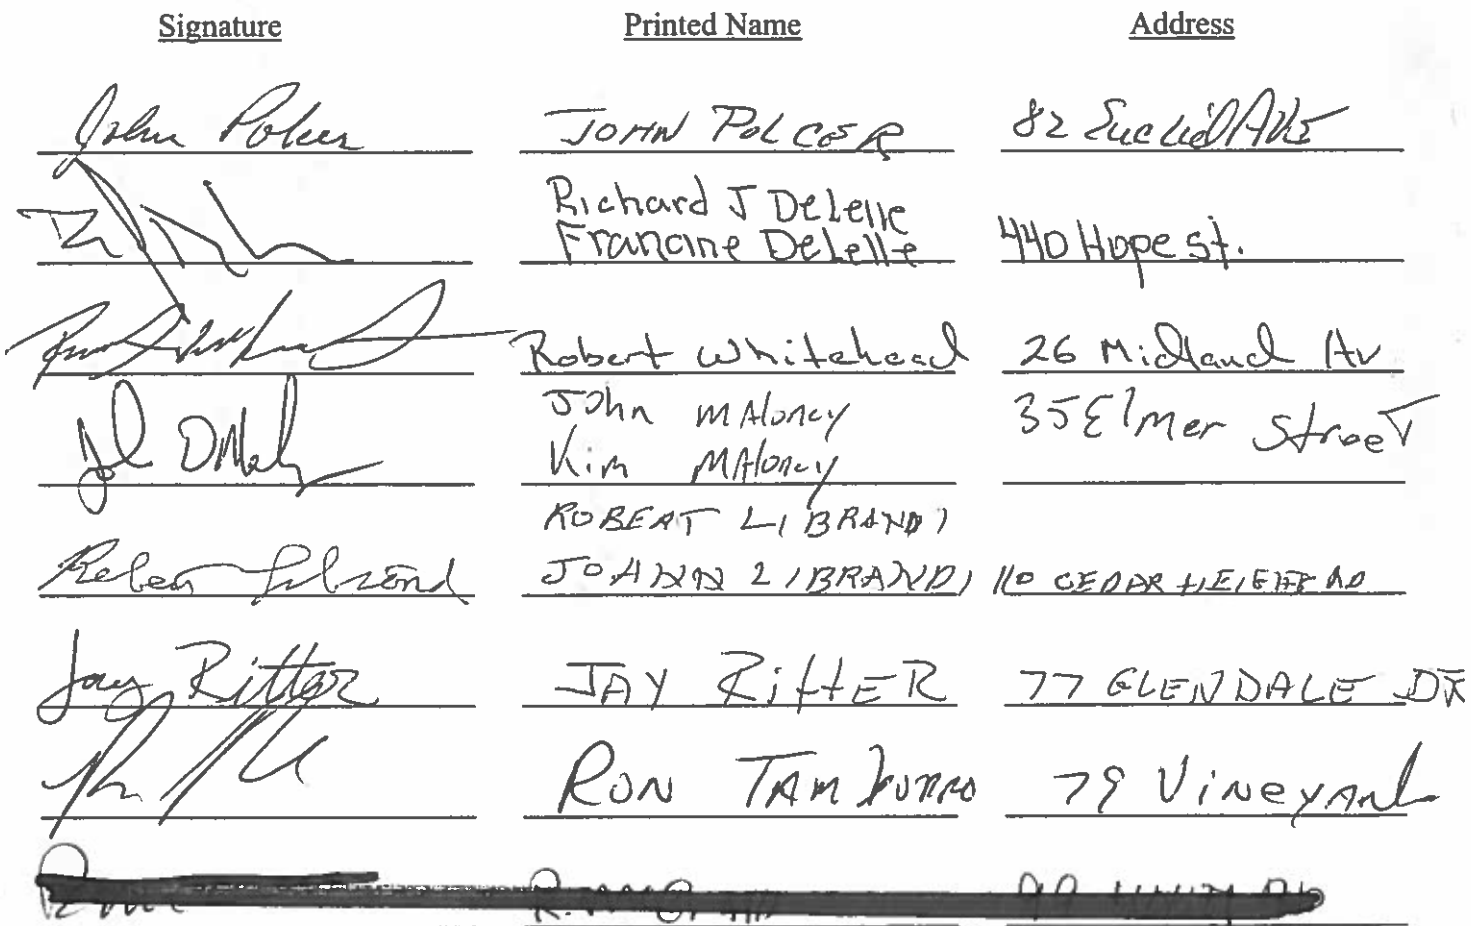 Signature Printed Name Address
John Polcer JOHN POLCER 82 Euclid AVE
Richard J DeLelle
Francine DeLelle 440 Hope st.
Robert Whitehead 26 Midland Av
John MAloney 35 Elmer Street
Kim MAloney
ROBERT LIBRANDI
JOANN LIBRANDI 110 CEDAR HEIGHTS RD
Jay Ritter JAY RittER 77 GLENDALE DR
RON TAMburro 79 Vineyard